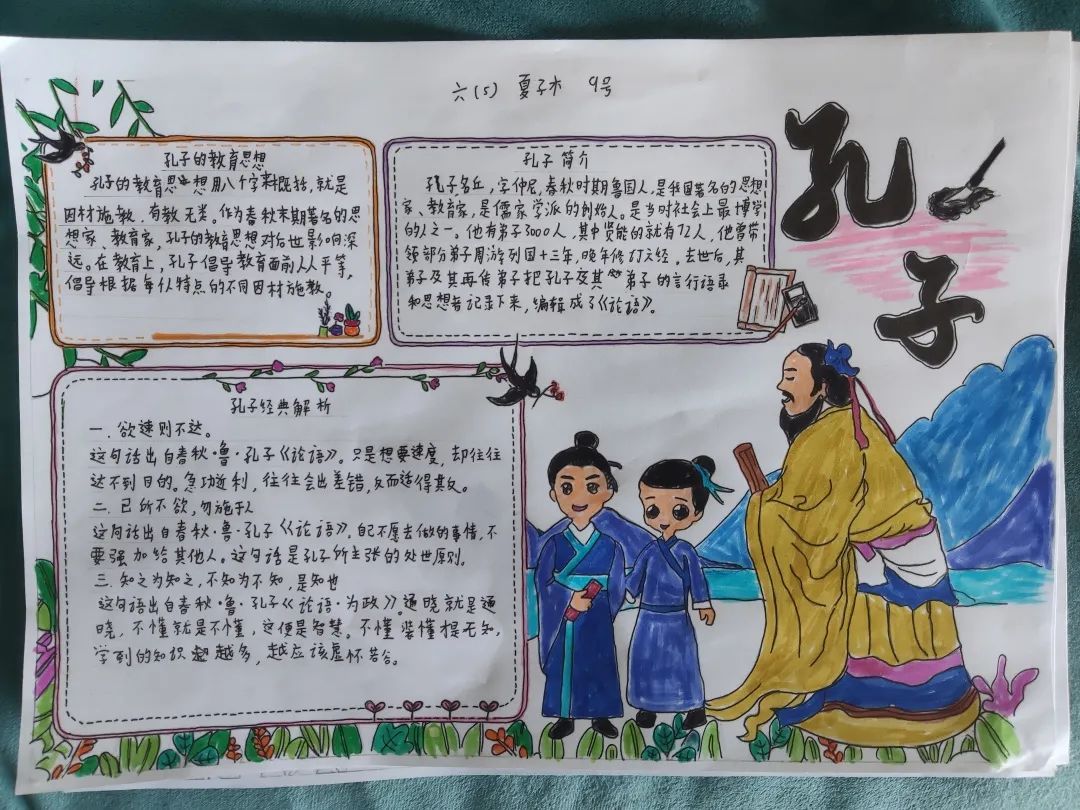 六(5) 夏子木 9号
孔子
孔子的教育思想
孔子的教育思想用八个字来概括,就是
因材施教,有教无类。作为春秋末期著名的思
想家、教育家,孔子的教育思想对后世影响深
远。在教育上,孔子倡导教育面前人人平等,
倡导根据每个人特点的不同因材施教。
孔子简介
孔子名丘,字仲尼,春秋时期鲁国人,是我国著名的思想
家、教育家,是儒家学派的创始人。是当时社会上最博学
的人之一。他有弟子3000人,其中贤能的就有72人,他曾带
领部分弟子周游列国十三年,晚年修订六经。去世后,其
弟子及其再传弟子把孔子及其弟子的言行语录
和思想都记录下来,编辑成了《论语》。
孔子经典解析
一.欲速则不达。
这句话出自春秋·鲁·孔子《论语》。只是想要速度,却往往
达不到目的。急功近利,往往会出差错,反而适得其反。
二.己所不欲,勿施于人
这句话出自春秋·鲁·孔子《论语》,自己不愿去做的事情,不
要强加给其他人。这句话是孔子所主张的处世原则。
三.知之为知之,不知为不知,是知也
这句语出自春秋·鲁·孔子《论语·为政》。通晓就是通
晓,不懂就是不懂,这便是智慧。不懂装懂是无知,
学到的知识越多,越应该虚怀若谷。